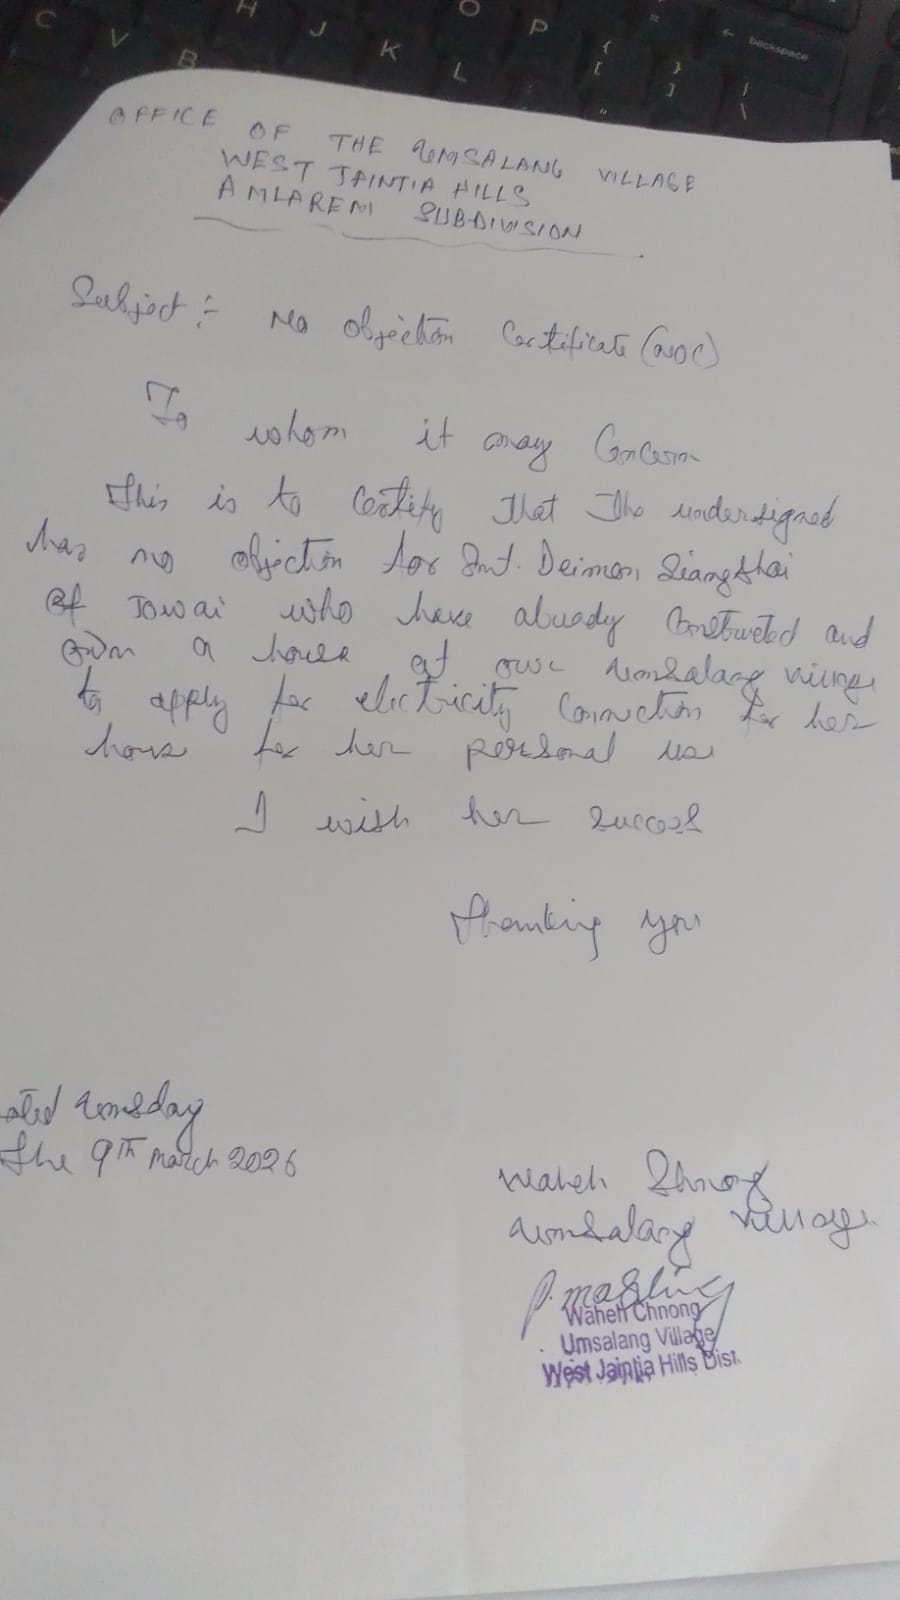 OFFICE OF THE UMSALANG VILLAGE
WEST JAINTIA HILLS
AMLAREM SUBDIVISION
Subject :- No Objection Certificate (NOC)
To whom it may Concern
This is to Certify that the undersigned
has no objection for Smt. Deimon Siangshai
of Jowai who have already Constructed and
own a house at our Umsalang village
to apply for electricity Connection for her
house for her personal use
I wish her success
Thanking you
ated
the 9TH March 2026
Waheh Shnong
Umsalang Village
Waheh Chnong
Umsalang Village
West Jaintia Hills Dist.
C V B H J K L O P
backspace